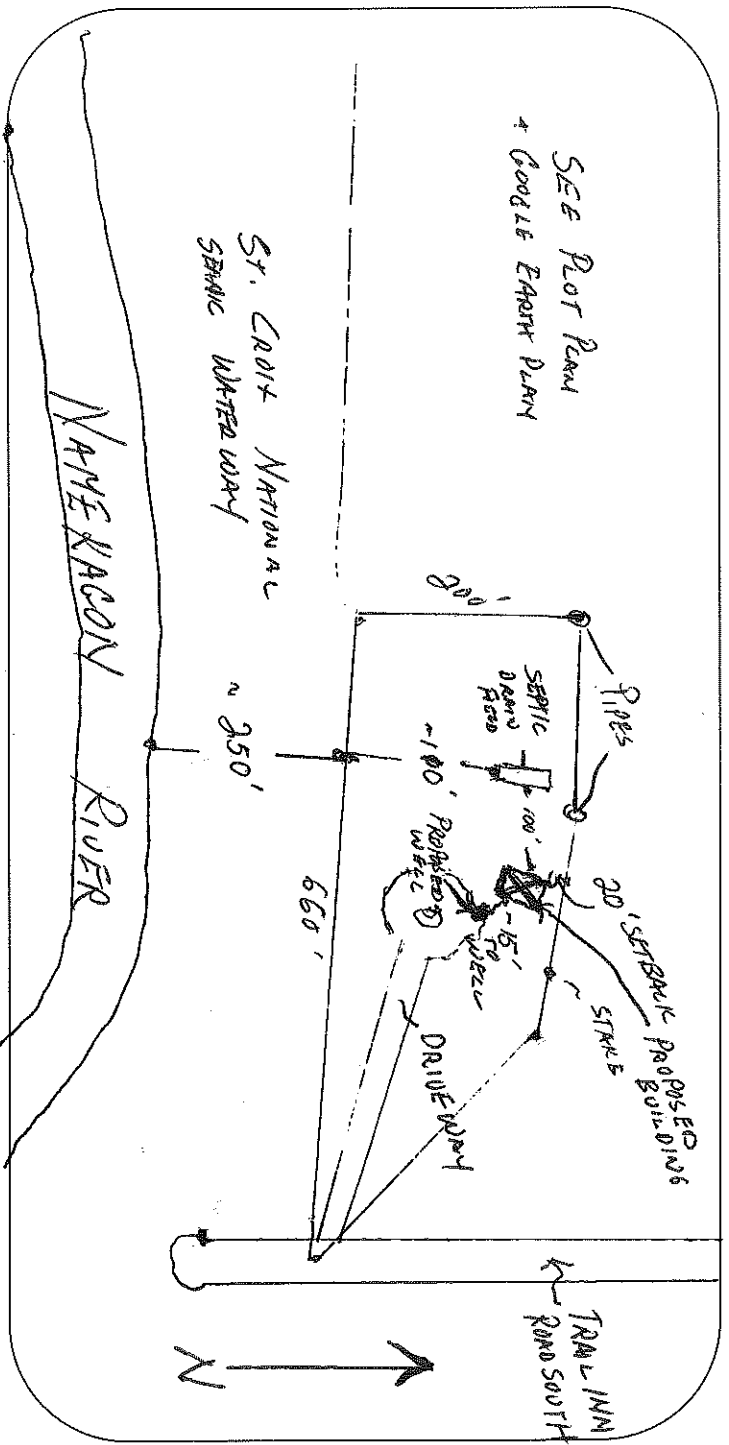 SEE PLOT PLAN
+ GOOGLE EARTH PLAN
ST. CROIX NATIONAL
SENIC WATERWAY
NAMEKAGON RIVER
~ 250'
200'
660'
PIPES
SEPTIC
DRAIN
FIELD
~100'
100'
PROPOSED
WELL
~15'
TO
WELL
20' SETBACK
PROPOSED
BUILDING
~ STAKE
DRIVEWAY
TRAIL INN
ROAD SOUTH
N